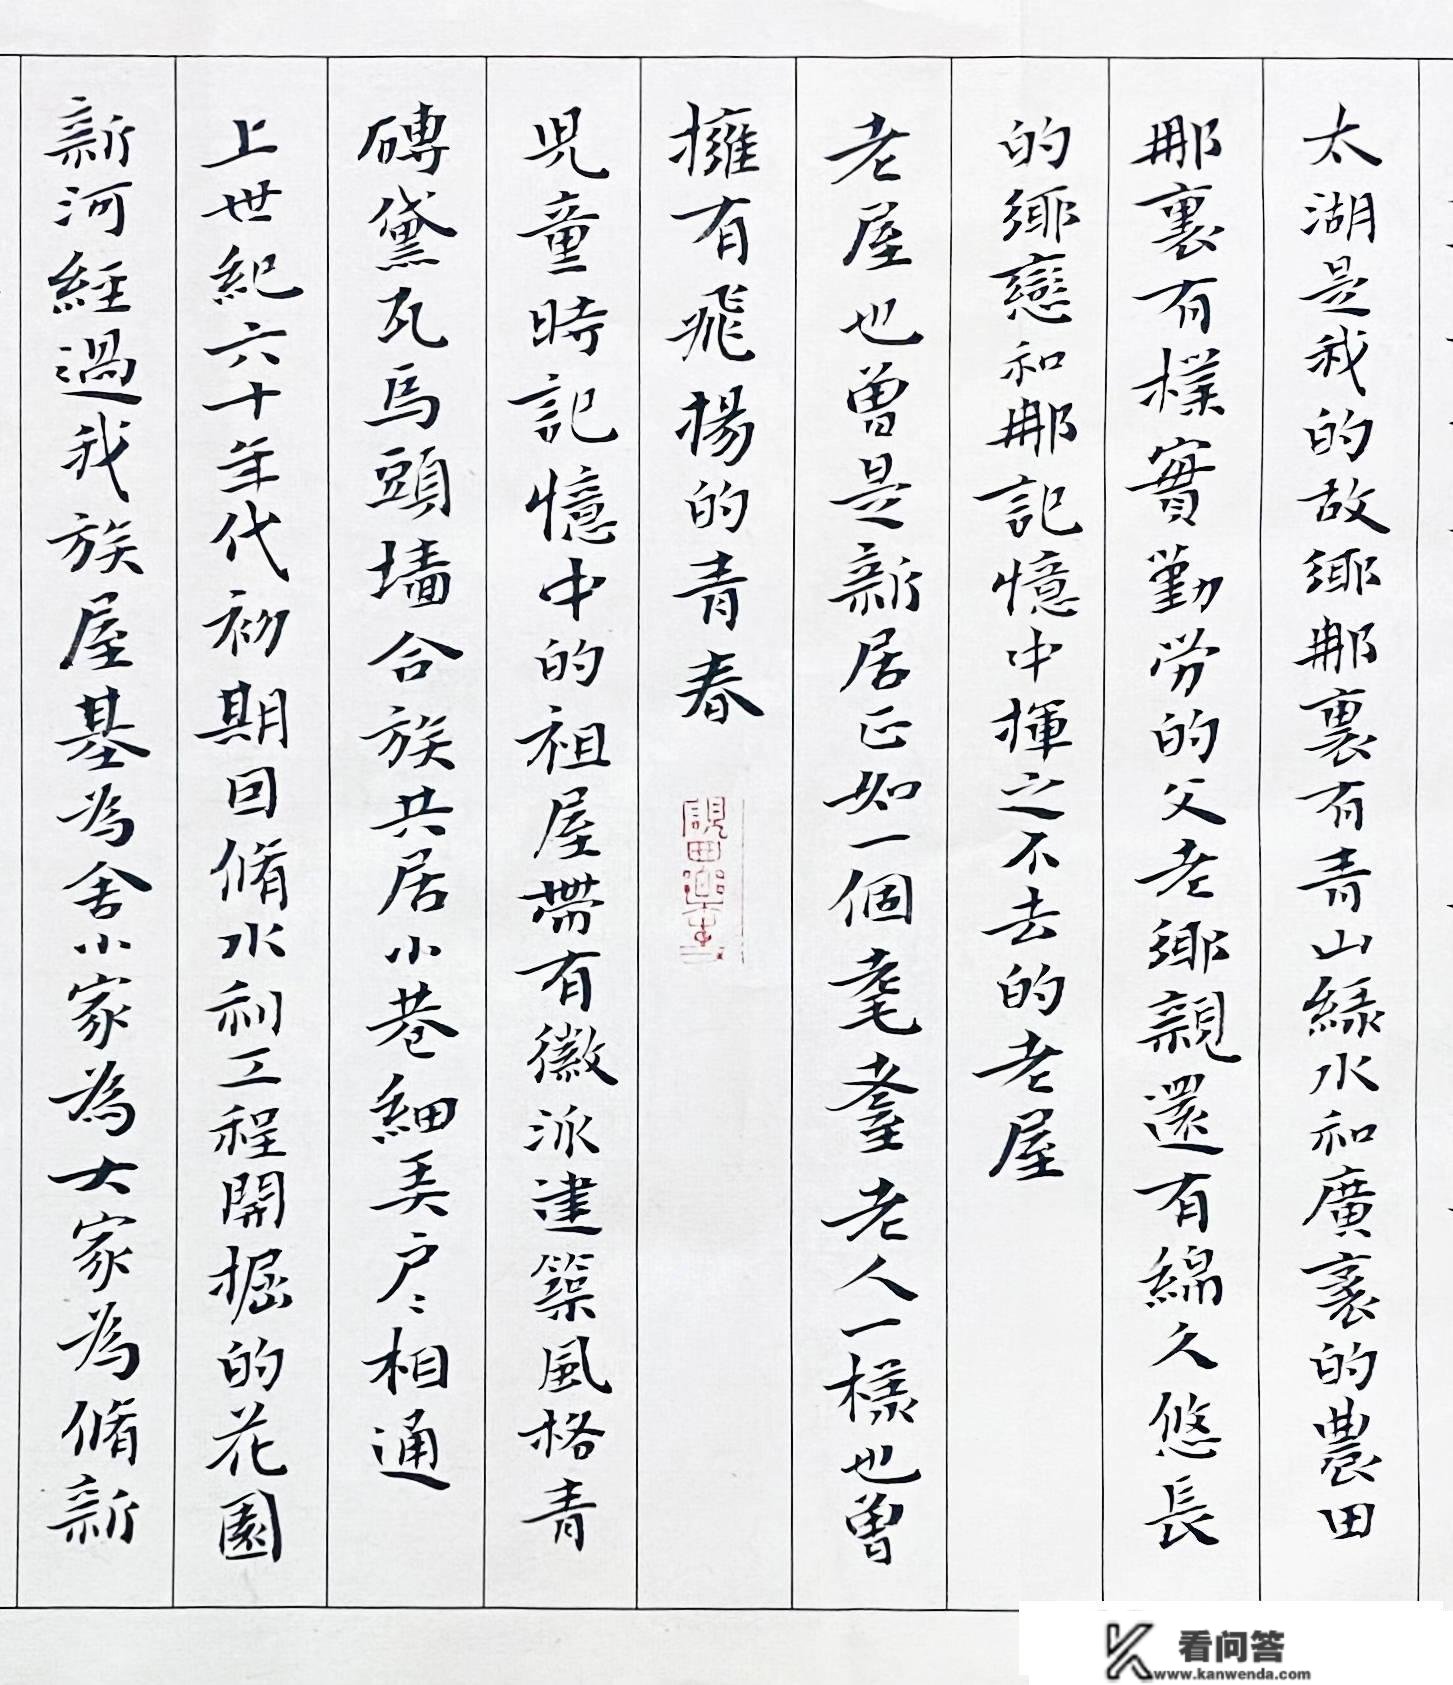 太湖是我的故鄉那裏有青山緑水和廣袤的農田
那裏有樸實勤勞的父老鄉親還有綿久悠長
的鄉戀和那記憶中揮之不去的老屋
老屋也曾是新居正如一個耄耋老人一樣也曾
擁有飛揚的青春
児童時記憶中的祖屋帶有徽派建築風格青
磚黛瓦馬頭墻合族共居小巷細弄户〻相通
上世紀六十年代初期囙脩水利工程開掘的花園
新河經過我族屋基為舍小家為大家為脩新
看问答
www.kanwenda.com